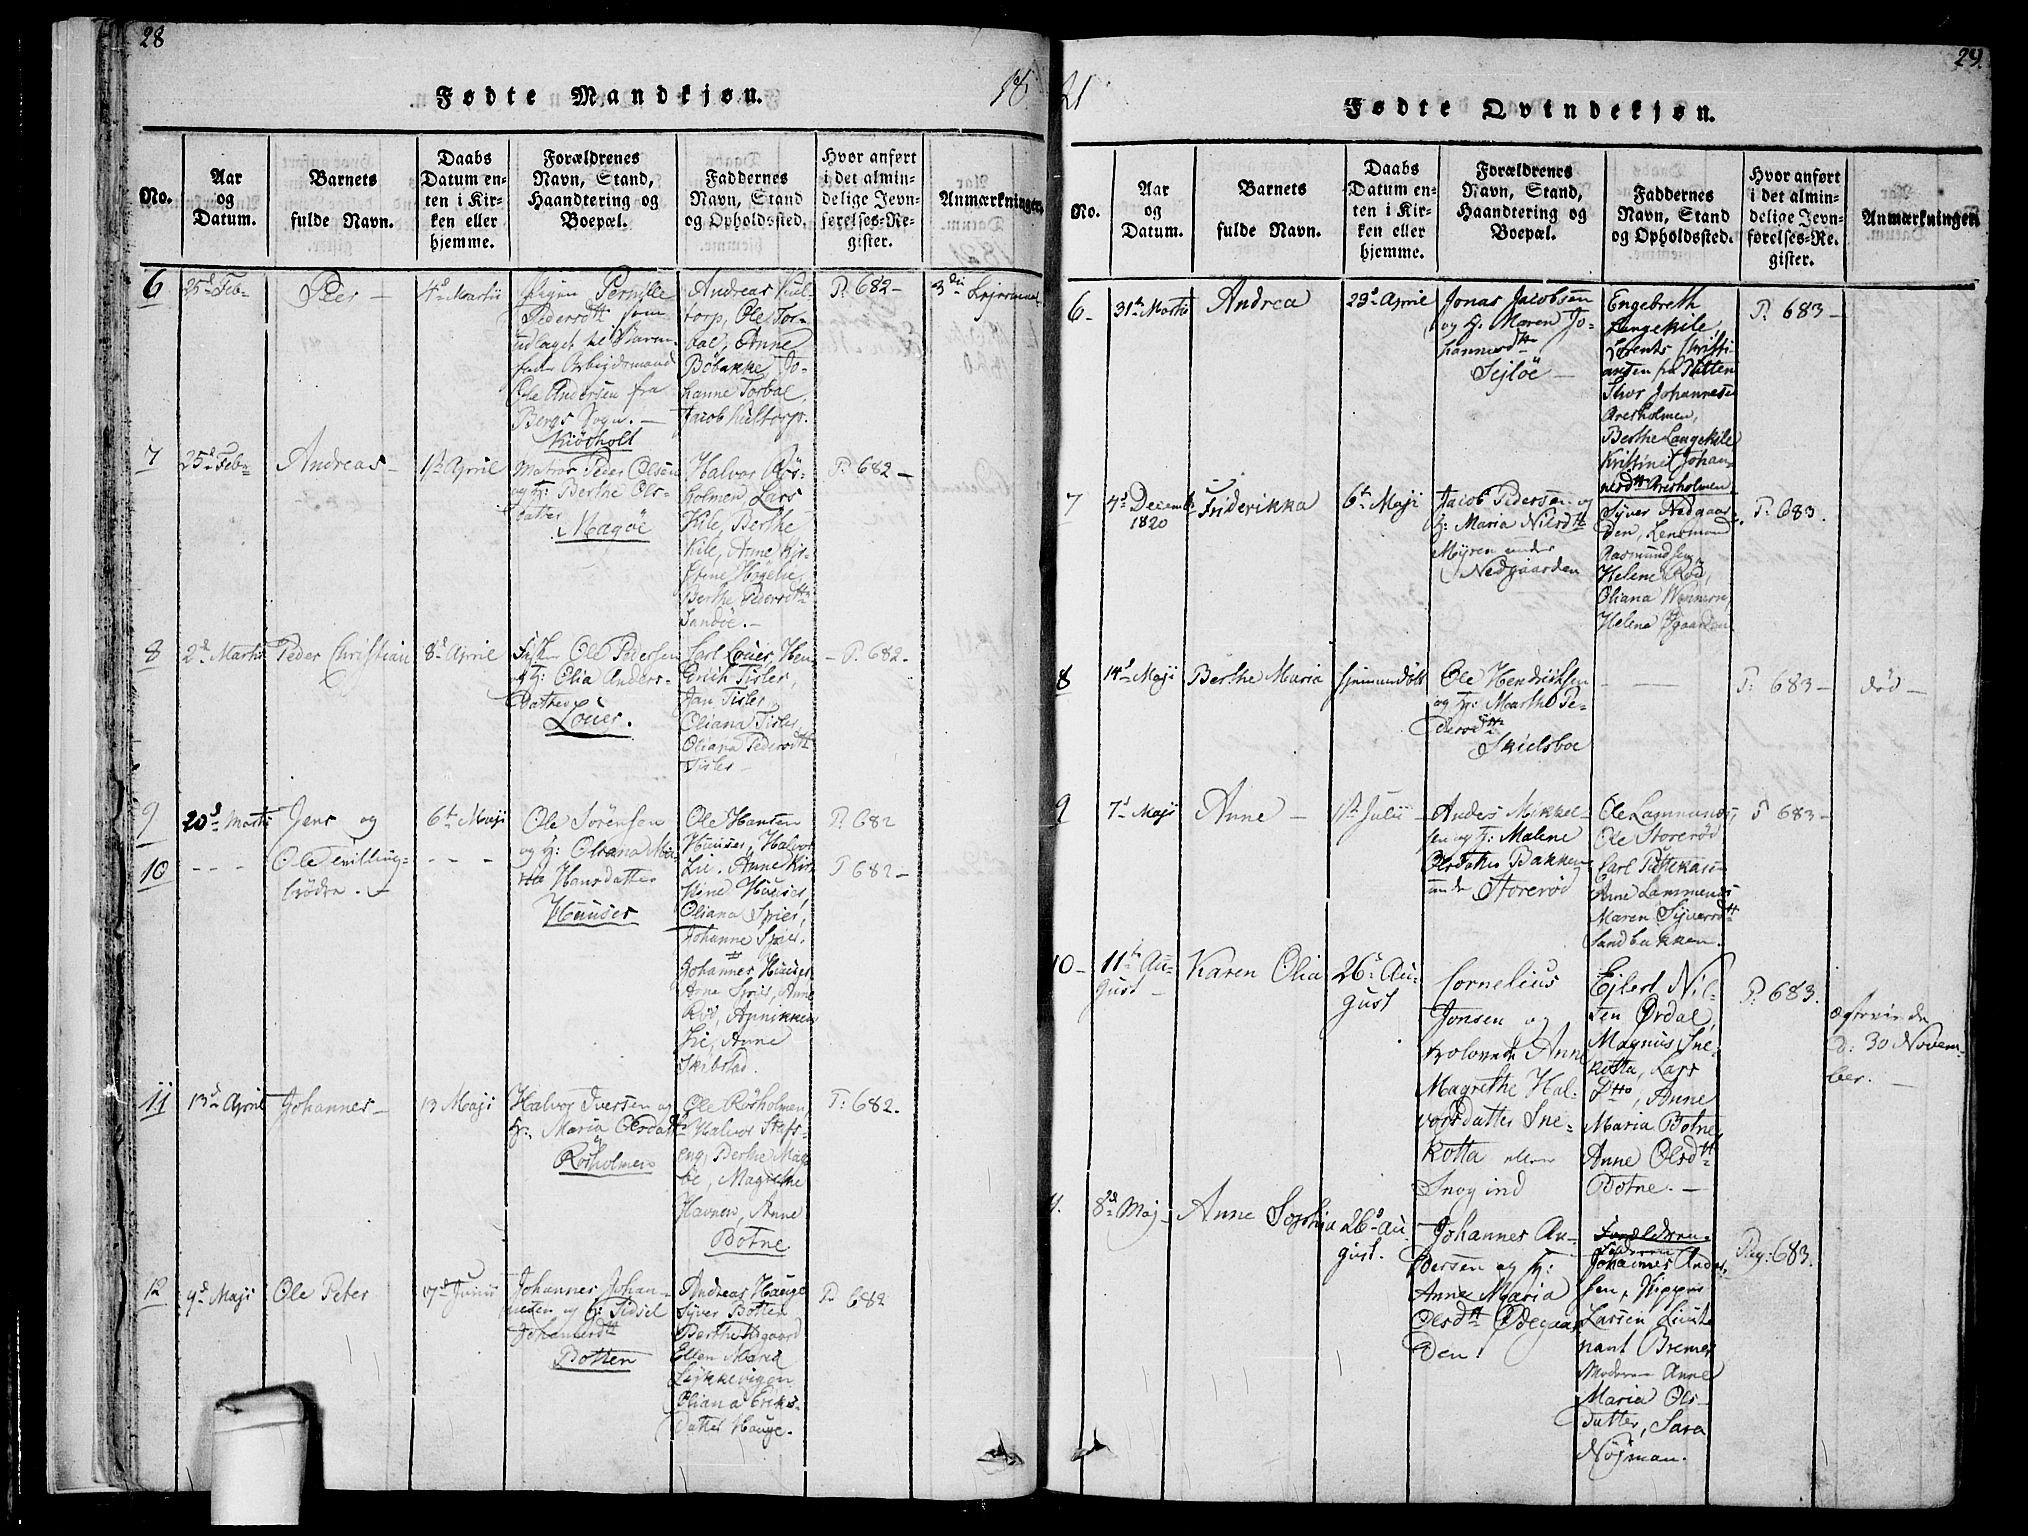 28
Fødte Mandkjøn.
18
No.
Aar
og
Datum.
Barnets
fulde Navn.
Daabs
Datum en-
ten i Kir-
ken eller
hjemme.
Forældrenes
Navn, Stand,
Haandtering og
Boepæl.
Faddernes
Navn, Stand
og Opholdssted.
Hvor anført
i det almin-
delige Jevn-
førelses-Re-
gister.
Anmærkninger.
6
25d Feb-
Peer -
4d Martii
Pigen Pernille
Pedersdtt som
udlaget til Barne-
fader Arbeidsmand
Ole Andersen fra
Bergs Sogn. -
Kiørholt
Andreas Kul-
torp, Ole Tor-
bal, Anne
Bøbakke, Jo-
hanne Torbal,
Jacob Kultorp.
P. 682 -
3die Lejermaal
7
25d Feb-
Andreas -
1st April
Matros Peder Olsen
og H: Berthe Ols-
datter
Magøe
Halvor Røs-
holmen, Lars
Kile, Berthe
Kile, Anne Kir-
stine Høgelie,
Berthe Pedersdtt
Sandøe. -
P. 682 -
8
2d Martii
Peder Christian
8d April
Ole Pedersen
og H: Olia Anders-
Datter
Louer.
Carl Louer, Hen-
Erich Tisler,
Jan Tisler,
Oliana Tisler,
Oliana Pedersdtt
Tisler -
- P. 682.
9
20d Martii
Jens og
6t Maji
Ole Sørensen
og H: Oliana
Hansdatter
Hauser
Ole Hansen
Hauser, Halvor
Lie, Anne Kir-
stine Hauser,
Oliana Spier,
Johanne Spier,
Johannes Hauser
Arne Spier, Anne
Rød, Annikken
Lie, Anne
Skibstad.
P. 682
10
- - -
Ole tvilling-
brødre. -
- - -
P 682 -
11
13d April
Johannes -
13 Maji
Halvor Iversen og
H: Maria Olsdatt
Røsholmen
Ole Røsholmen
Halvor Stafs-
eng, Berthe Mag-
øe, Magrethe
Havnen, Anne
Botne
P: 682.
12
9d Maji
Ole Peter
17d Junii
Johannes Johan-
nesen og H: Sidsel
Johannesdtt
Botten
Andreas Hauge
Syver Botten
Berthe
Ellen Maria
Lykkevigen
Oliana Eriks-
Datter Hauge.
P. 682
29.
21
Fødte Qvindekjøn.
No.
Aar
og
Datum.
Barnets
fulde Navn.
Daabs
Datum en-
ten i Kir-
ken eller
hjemme.
Forældrenes
Navn, Stand,
Haandtering og
Boepæl.
Faddernes
Navn, Stand
og Opholdssted.
Hvor anført
i det almin-
delige Jevn-
førelses-Re-
gister.
Anmærkninger.
6 -
31te Martii
Andrea
23d April
Jonas Jacobsen
og H: Maren Jo-
hannesdtt
Sejløe -
Engebreth
Langekile,
Lorents Kristi-
ansen fra Pletten
Thor Johannesen
Aresholmen,
Berthe Langekile
Kristine Johan-
nesdtt Aresholmen
P. 683 -
7
4d Decemb
1820
Friderikka
6t Maji
Jacob Pedersen og
H: Maria Nilsdtt
Myren under
Nedgaarden
Syver Nedgaar-
den, Lensmand
Rasmussen,
Helene Rød,
Oliana
Helene
P. 683.
8
14d Maji
Berthe Maria
hjemmedøbt
Ole Hendrichsen
og H: Marthe Pe-
dersdtt
Skielsboe
- -
P. 683 -
død -
9
7d Maji
Anne -
1st Julii -
Anders Mikkel-
sen og H: Malene
Olsdatter Bakken
under Storerød
Ole Lammunds,
Ole Storerød
Carl
Anne Lammunds
Maren Syversdtt
Sandbakken.
P 683 -
10 -
11te Au-
gust -
Karen Olia
26d Au-
gust
Cornelius
Jonsen og
Anne
Magrethe Hal-
vorsdatter Sne-
kotta eller
Snogind
Ejlert Nil-
sen Ørdal,
Magnus Sne-
kotta, Lars
Ditto, Anne
Maria Botne,
Anne Olsdtt
Botne. -
P. 683.
d: 30 Novem-
ber. -
11.
8d Maj -
Anne Sophia
26d Au-
gust.
Johannes An-
dersen og H:
Anne Maria
Olsdtt Ødegaar-
den.
Forældrene
Faderen
Johannes Ander-
sen,
Larsen
nant Bremer
Moderen Anne
Maria Ols-
datter, Sara
Nøjman.
Pag: 683.